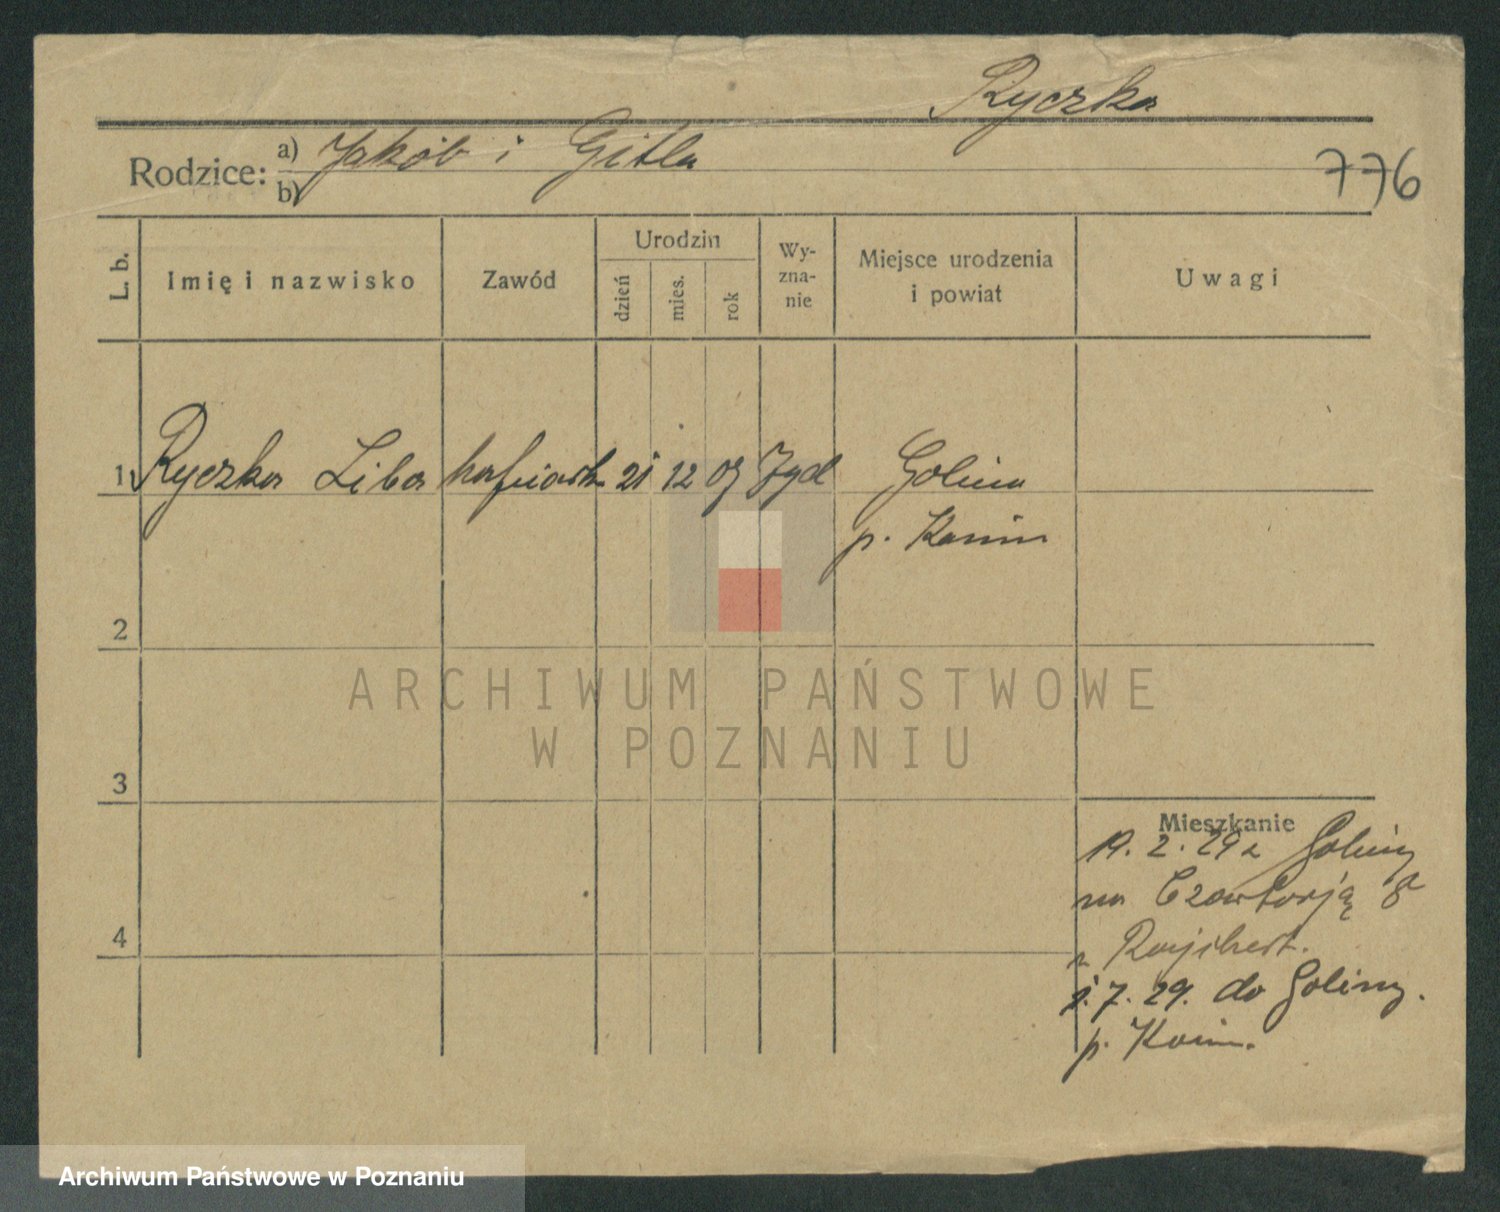 Ryczka
Rodzice: a) Jakób i Gitla
b)
776
L. b.
Imię i nazwisko
Zawód
Urodzin
dzień
mies.
rok
Wy-
zna-
nie
Miejsce urodzenia
i powiat
Uwagi
1 Ryczka Liba hafciark 21 12 09 Żyd Golina
p. Konin
2
3
4
Mieszkanie
19. 2. 29 z Goliny
na Czartorją 8
z Rajchert.
1. 7. 29. do Goliny.
p. Konin.
ARCHIWUM PAŃSTWOWE
W POZNANIU
Archiwum Państwowe w Poznaniu